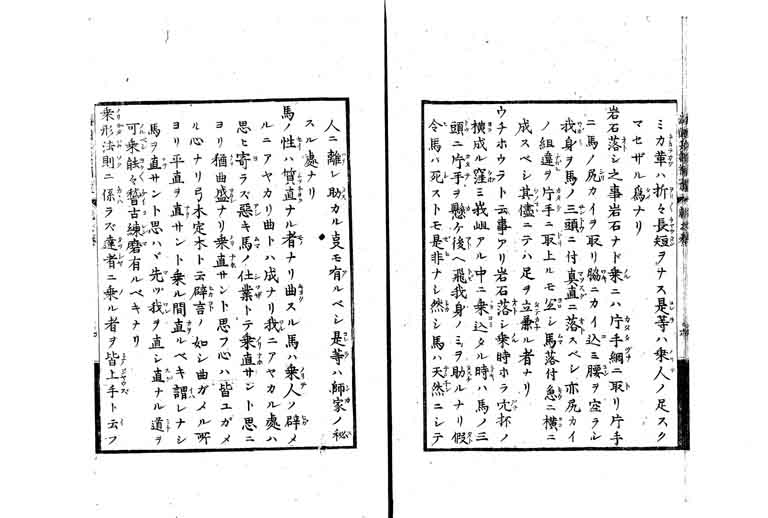 ミカ革ハ折々長短ヲナス是等ハ乗人ノ足スク
マセザル爲ナリ
岩石落シ之事岩石ナド乗ニハ片手綱ニ取リ片手
ニ馬ノ尻カイヲ取リ脇ニカイ込ミ腰ヲ空ラシ
我身ヲ馬ノ三頭ニ付真直ニ落スベシ亦尻カイ
ノ組違ヲ片手ニ取上ルモ宜シ馬落付急ニ横ニ
成スベシ其儘ニテハ足ヲ立兼ル者ナリ
ウチホウラト云事アリ岩石落シ乗時ホラ穴杯ノ
横成ル窪ミ或岨アル中ニ乗込タル時ハ馬ノ三
頭ニ片手ヲ懸ケ後ヘ飛我身ノミヲ助ルナリ假
令馬ハ死ストモ是非ナシ然シ馬ハ天然ニシテ
人ニ離レ助カル支モ有ルベシ是等ハ師家ノ秘
スル處ナリ
馬ノ性ハ質直ナル者ナリ曲スル馬ハ乗人ノ癖メ
ルニアヤカリ曲トハ成ナリ我ニアヤカル處ハ
思ヒ寄ラズ惡キ馬ノ仕業トテ乗直サント思ニ
ヨリ猶曲盛ナリ乗直サント思フ心ハ皆ユガメ
ル心ナリ弓木定木ト云辟言ノ如シ曲ガメル所
ヨリ平直ヲ直サント乗ル間直ルベキ謂レナシ
馬ヲ直サント思ハヾ先ヅ我ヲ直シ直ナル道ヲ
可乗能々稽古練磨有ルベキナリ
乗形法則ニ係ラズ達者ニ乗ル者ヲ皆上手ト云フ